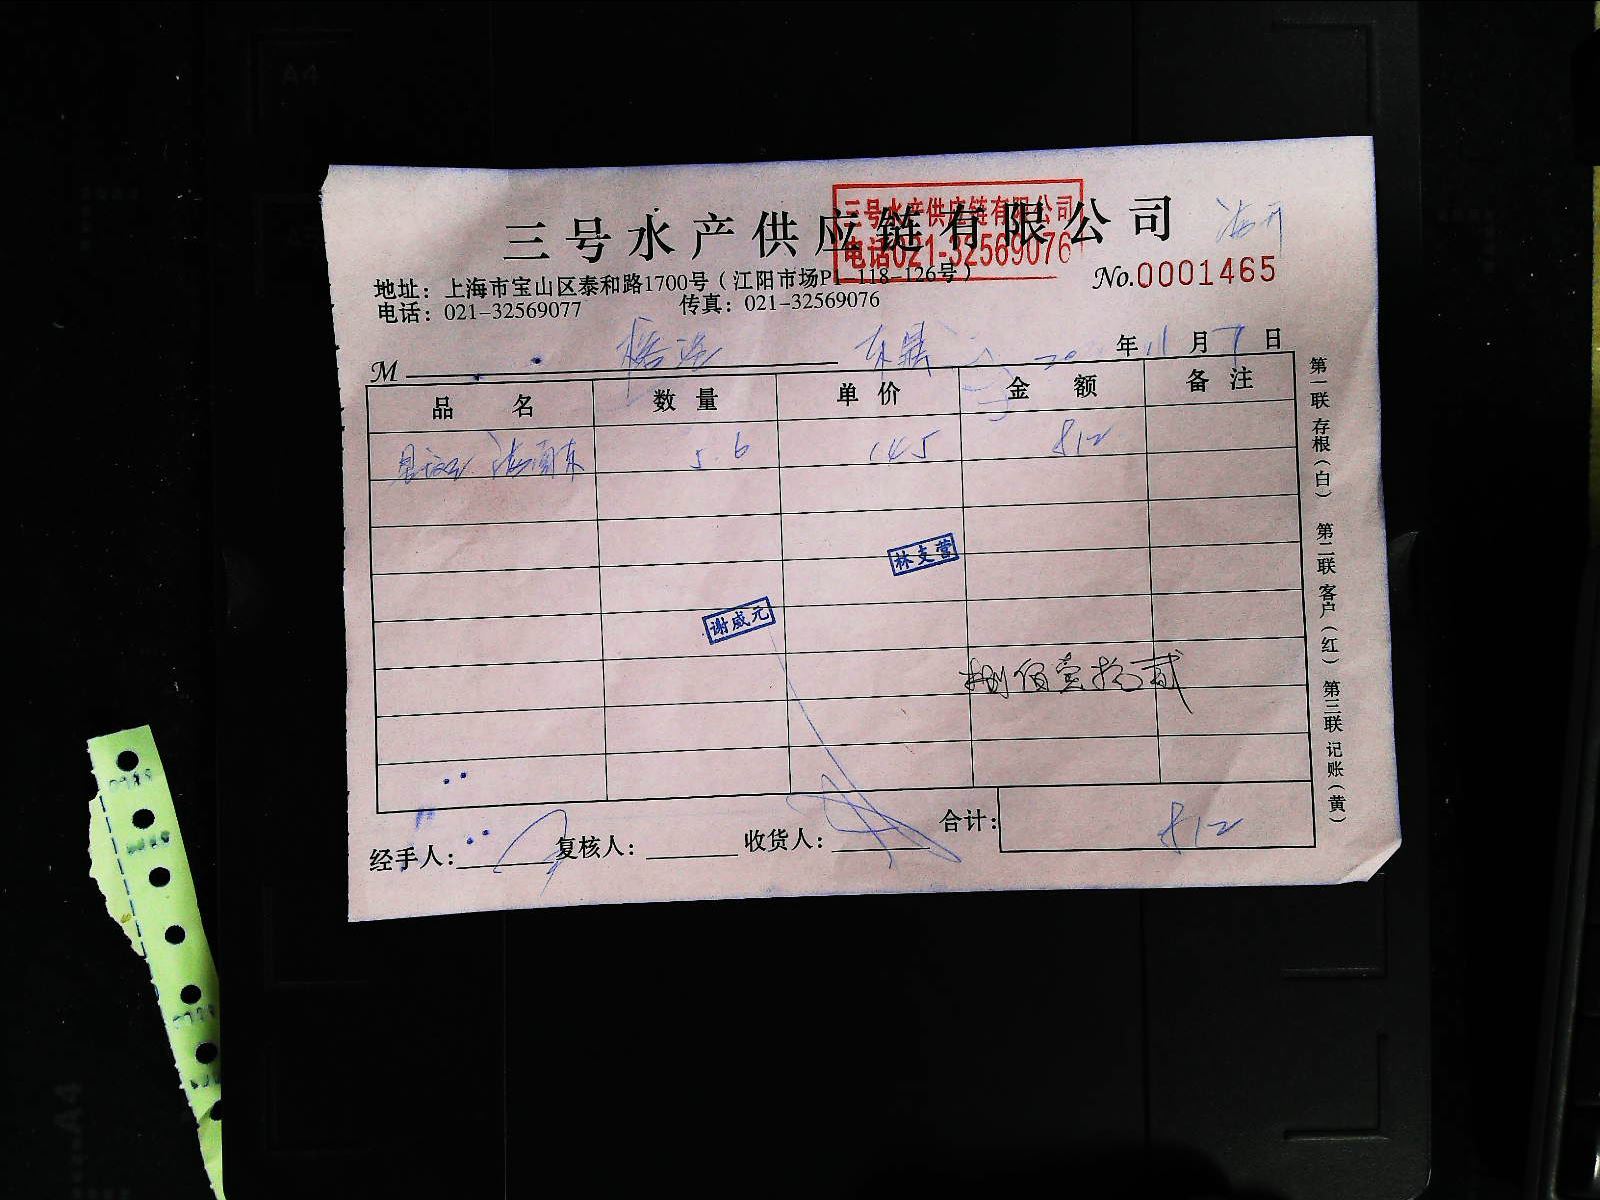 三号水产供应链有限公司
三号水产供应链有限公司
电话021-32569076
地址：上海市宝山区泰和路1700号（江阳市场P1-118-126号）
No.0001465
电话：021-32569077 传真：021-32569076
M 东鼎 20 年11月7日
品名 数量 单价 金额 备注
5.6 145 812
林支营
谢咸元
捌佰壹拾贰
合计：812
经手人： 复核人： 收货人：
第一联 存根（白） 第二联 客户（红） 第三联 记账（黄）
A4
A4